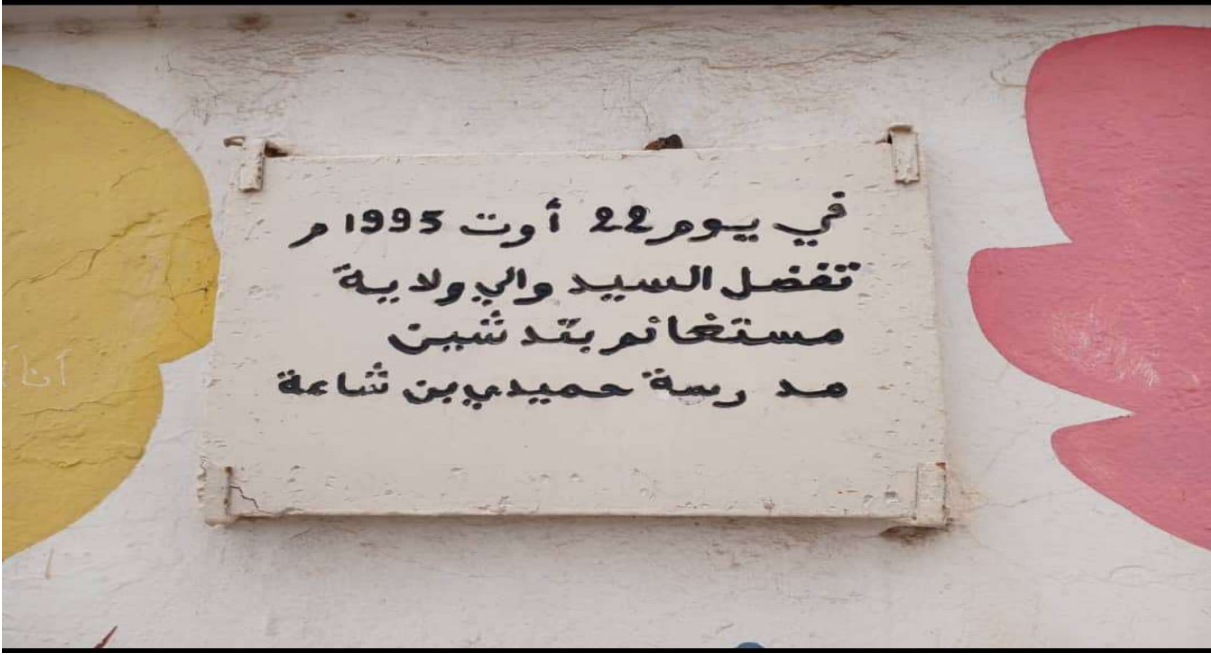 في يوم 22 أوت 1995 م
تفضل السيد والي ولاية
مستغانم بتدشين
مدرسة حميدي بن شاعة